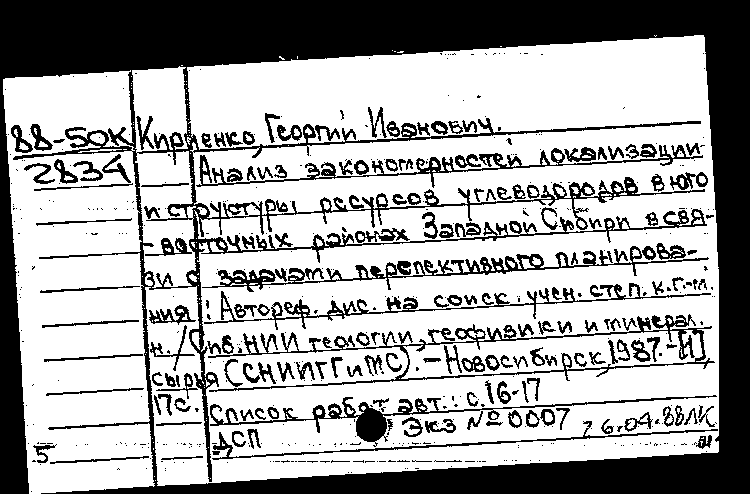 88-50К Кириенко, Георгий Иванович.
2834 Анализ закономерностей локализации
и структуры ресурсов углеводородов в юго
-восточных районах Западной Сибири в свя-
зи с задачами перспективного планирова-
ния : Автореф. дис. на соиск. учен. степ. к.г.-м.
н. / Сиб. НИИ геологии, геофизики и минерал.
сырья (СНИИГГиМС). – Новосибирск, 1987. – [1],
17с. Список работ авт.: с. 16-17
ДСП Экз № 0007 26.04.88ЛК
5